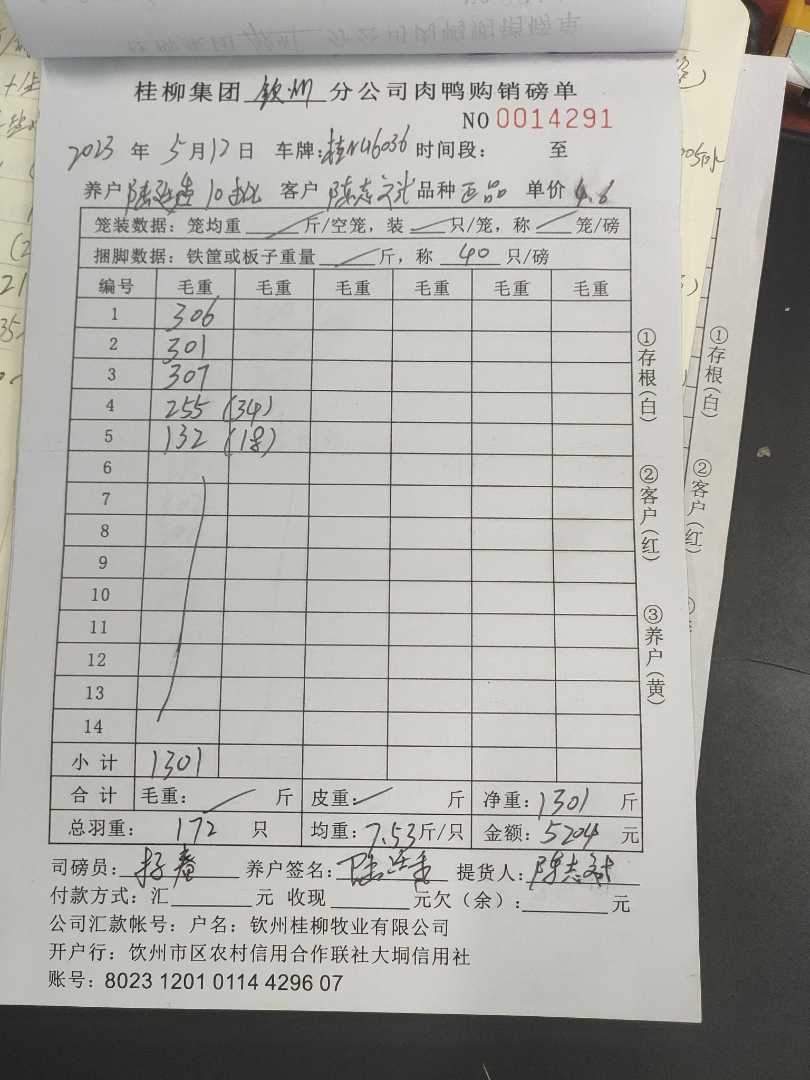 桂柳集团 钦州 分公司肉鸭购销磅单
NO 0014291
2023 年 5 月 12 日 车牌:桂N46036 时间段: 至
养户 10批 客户 陈志文 品种 正品 单价
笼装数据: 笼均重 斤/空笼, 装 只/笼, 称 笼/磅
捆脚数据: 铁筐或板子重量 斤, 称 40 只/磅
编号 毛重 毛重 毛重 毛重 毛重 毛重
1 306
2 301
3 307
4 255 (34)
5 132 (18)
6
7
8
9
10
11
12
13
14
小计 1301
合计 毛重: 斤 皮重: 斤 净重: 1301 斤
总羽重: 172 只 均重: 7.53斤/只 金额: 5204 元
司磅员: 养户签名: 提货人: 陈志文
付款方式: 汇 元 收现 元欠(余): 元
公司汇款帐号: 户名: 钦州桂柳牧业有限公司
开户行: 饮州市区农村信用合作联社大垌信用社
账号: 8023 1201 0114 4296 07
①存根(白)
②客户(红)
③养户(黄)
①存根(白)
②客户(红)